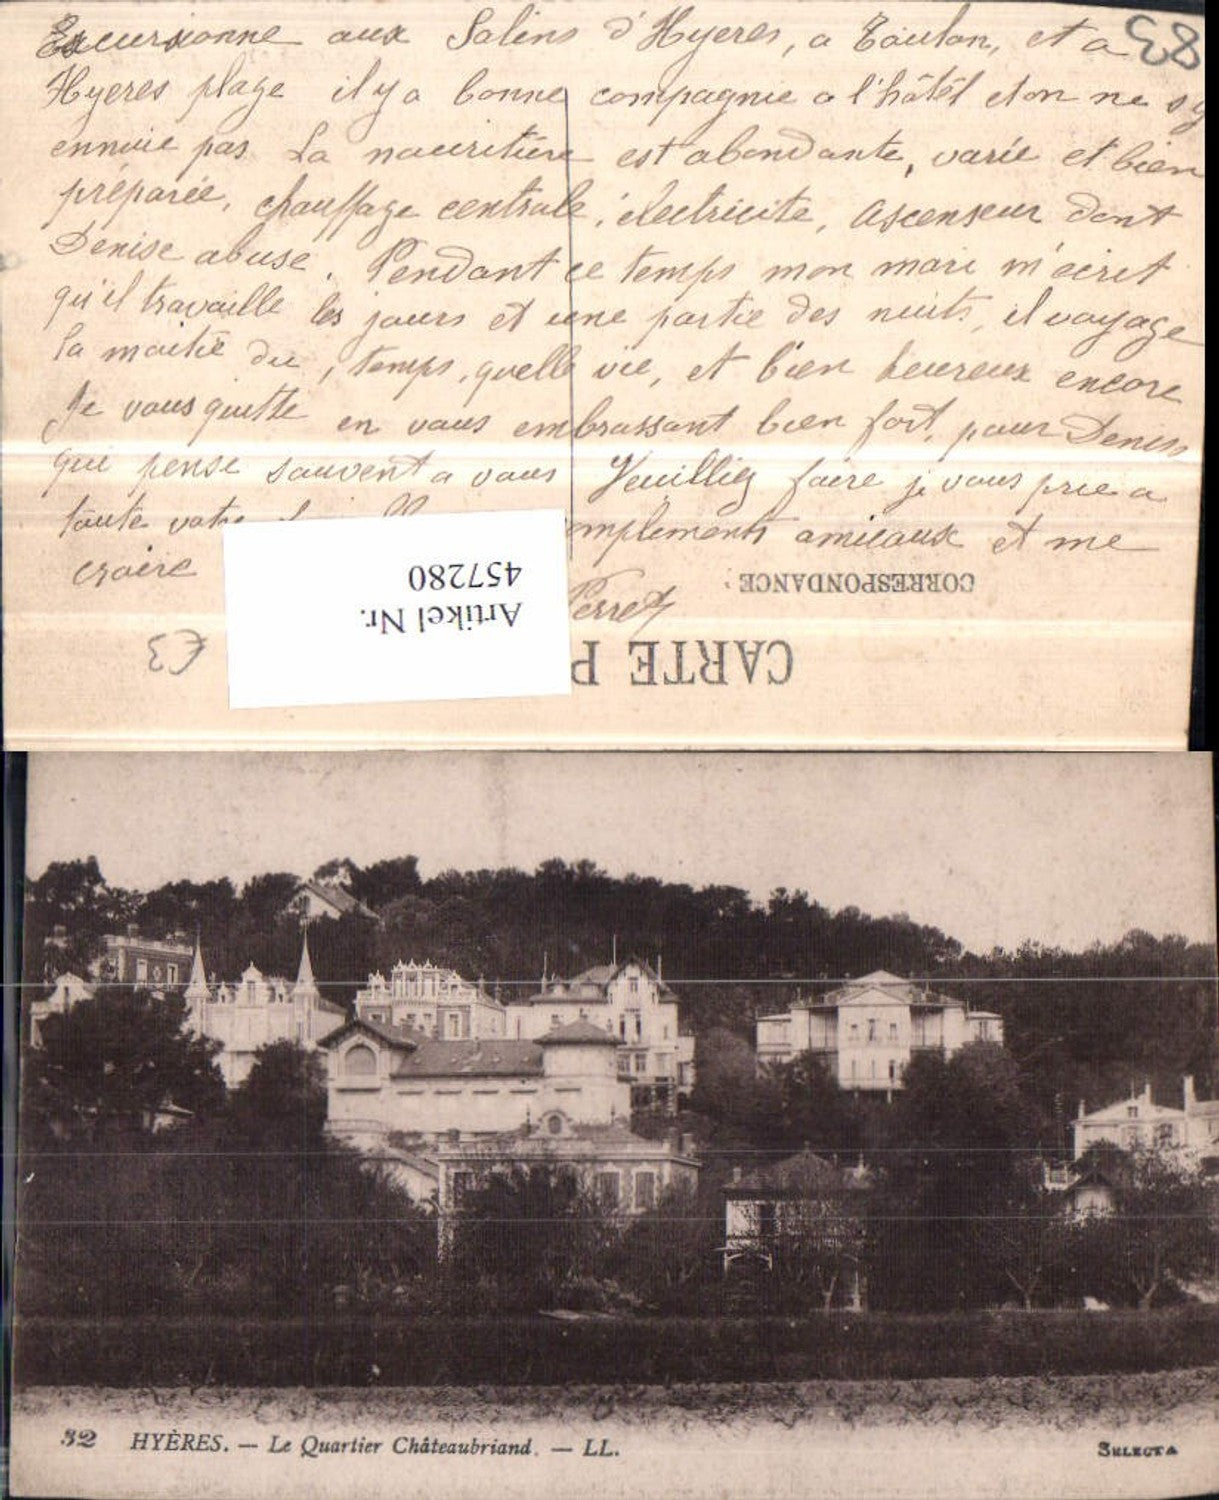 Excursionne aux Salins d'Hyeres, a Toulon, et a
83
Hyeres plage il y a bonne compagnie a l'hôtel et on ne s'y
ennuie pas. La nouriture est abondante, varie et bien
préparée, chauffage centrale, électricite, ascenseur dont
Denise abuse. Pendant ce temps mon mari m'ecrit
qu'il travaille les jours et une partie des nuits, il voyage
la moitié du temps, quelle vie, et bien heureux encore
Je vous quitte en vous embrassant bien fort, pour Denise
qui pense souvent a vous Veuilliez faire je vous prie a
toute votre complements amicaux et me
croire
Perret
CORRESPONDANCE
CARTE P
Artikel Nr.
457280
€3
32 HYÈRES. — Le Quartier Châteaubriand. — LL.
SELECTA